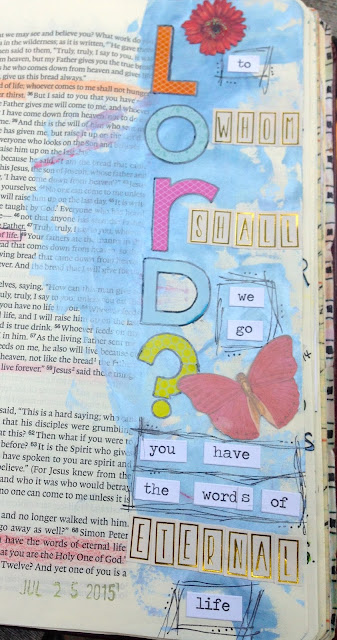 we may see and believe? What work do
in the wilderness; as it is written, "He gave them
then said to them, "Truly, truly, I say to you, it
om heaven, but my Father gives you the true bread
he who comes down from heaven and gives
give us this bread always."
of life; whoever comes to me shall not hunger
thirst. 36 But I said to you that you have
Father gives me will come to me, and whoe
I have come down from heaven, not to do
me. 39 And this is the will of him who
has given me, but raise it up on the
everyone who looks on the Son and
raise him up on the
because he said, the bread that came
this Jesus, the son of Joseph, whose father and
'I have come down from heaven'?"
yourselves. 44
will raise him up on the last day. 45 It is
taught by God.' Everyone who
46 not that anyone has seen
Father. 47 Truly, truly, I say to you,
of life. 49 Your fathers ate the
ead that comes down from
ving bread that came down from
ever. And the bread that I will give for
selves, saying, "How can this man give
uly, truly, I say to you, unless you eat
you have no life in you.
l life, and I will raise him
d is true drink. 56 Whoever feeds on
in him. 57 As the living Father sent
eeds on me, he also will live because
heaven, not like the bread the
live forever." 59 Jesus said these things
said, "This is a hard saying; who
that his disciples were grumbling
at this? 62 Then what if you were to
before? 63 It is the Spirit who gives
have spoken to you are spirit and
believe." (For Jesus knew from the
and who it was who would betray
no one can come to me unless it is
and no longer walked with him.
go away as well?" 68 Simon Peter
have the words of eternal life
at you are the Holy One of God."
Twelve? And yet one of you is a
JUL 25 2015
LOrD?
to
WHOM
SHALL
we
go
you have
the words of
ETERNAL
life